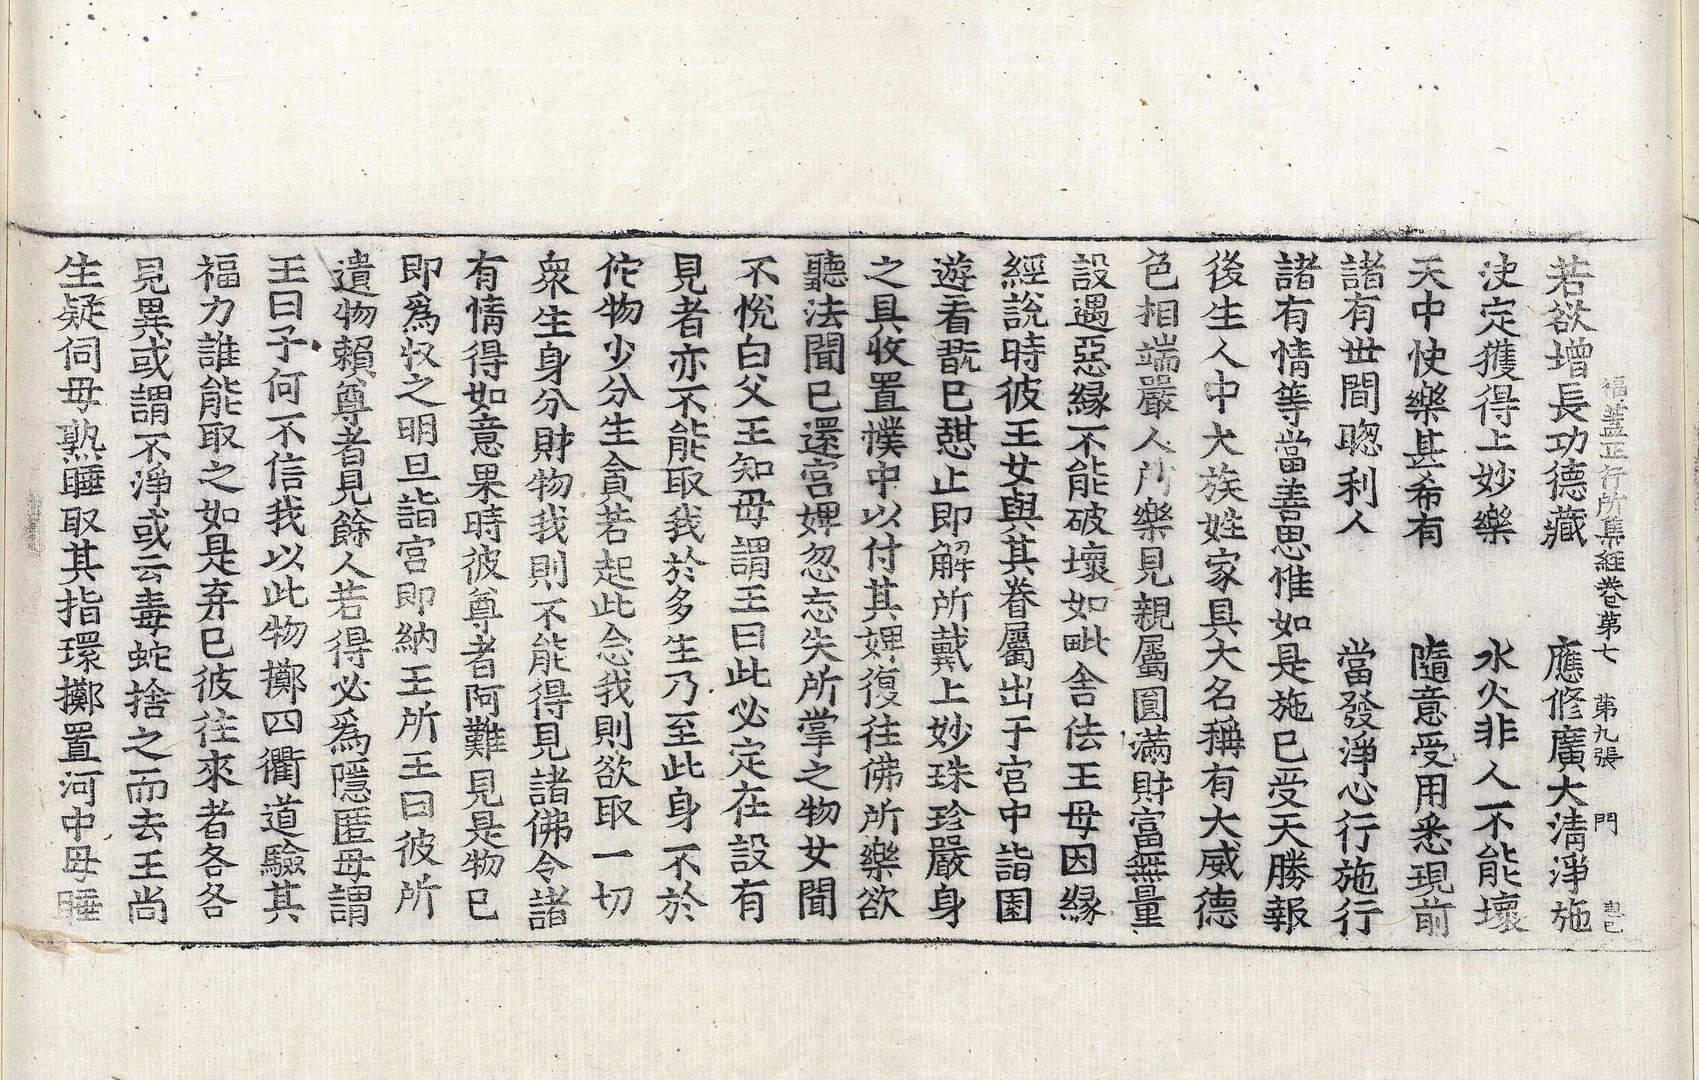 福蓋正行所集經卷第七　第九張　門
若欲增長功德藏　應修廣大清淨施
決定獲得上妙樂　水火非人不能壞
天中快樂甚希有　隨意受用悉現前
諸有世間聰利人　當發淨心行施行
諸有情等當善思惟如是施已受天勝報
後生人中大族姓家具大名稱有大威德
色相端嚴人所樂見親屬圓滿財富無量
設遇惡緣不能破壞如毗舍佉王母因緣
經說時彼王女與其眷屬出于宮中詣園
遊看翫已憇止即解所戴上妙珠珍嚴身
之具收置㡤中以付其婢復往佛所樂欲
聽法聞已還宮婢忽忘失所掌之物女聞
不悅白父王知母謂王曰此必定在設有
見者亦不能取我於多生乃至此身不於
佗物少分生貪若起此念我則欲取一切
衆生身分財物我則不能得見諸佛令諸
有情得如意果時彼尊者阿難見是物已
即爲收之明旦詣宮即納王所王曰彼所
遺物賴尊者見餘人若得必爲隱匿母謂
王曰子何不信我以此物擲四衢道驗其
福力誰能取之如是弃已彼往來者各各
見異或謂不淨或云毒蛇捨之而去王尚
生疑伺母熟睡取其指環擲置河中母睡